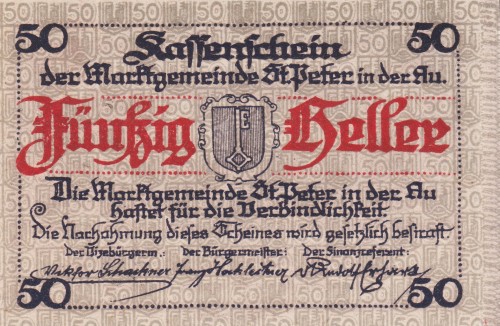 50 50
Kassenschein
der Marktgemeinde St. Peter in der Au.
Fünfzig Heller
E
Die Marktgemeinde St. Peter in der Au
haftet für die Verbindlichkeit.
Die Nachahmung dieses Scheines wird gesetzlich bestraft
Der Vizebürgerm.: Der Bürgermeister: Der Finanzreferent:
Viktor Schachner
50 50